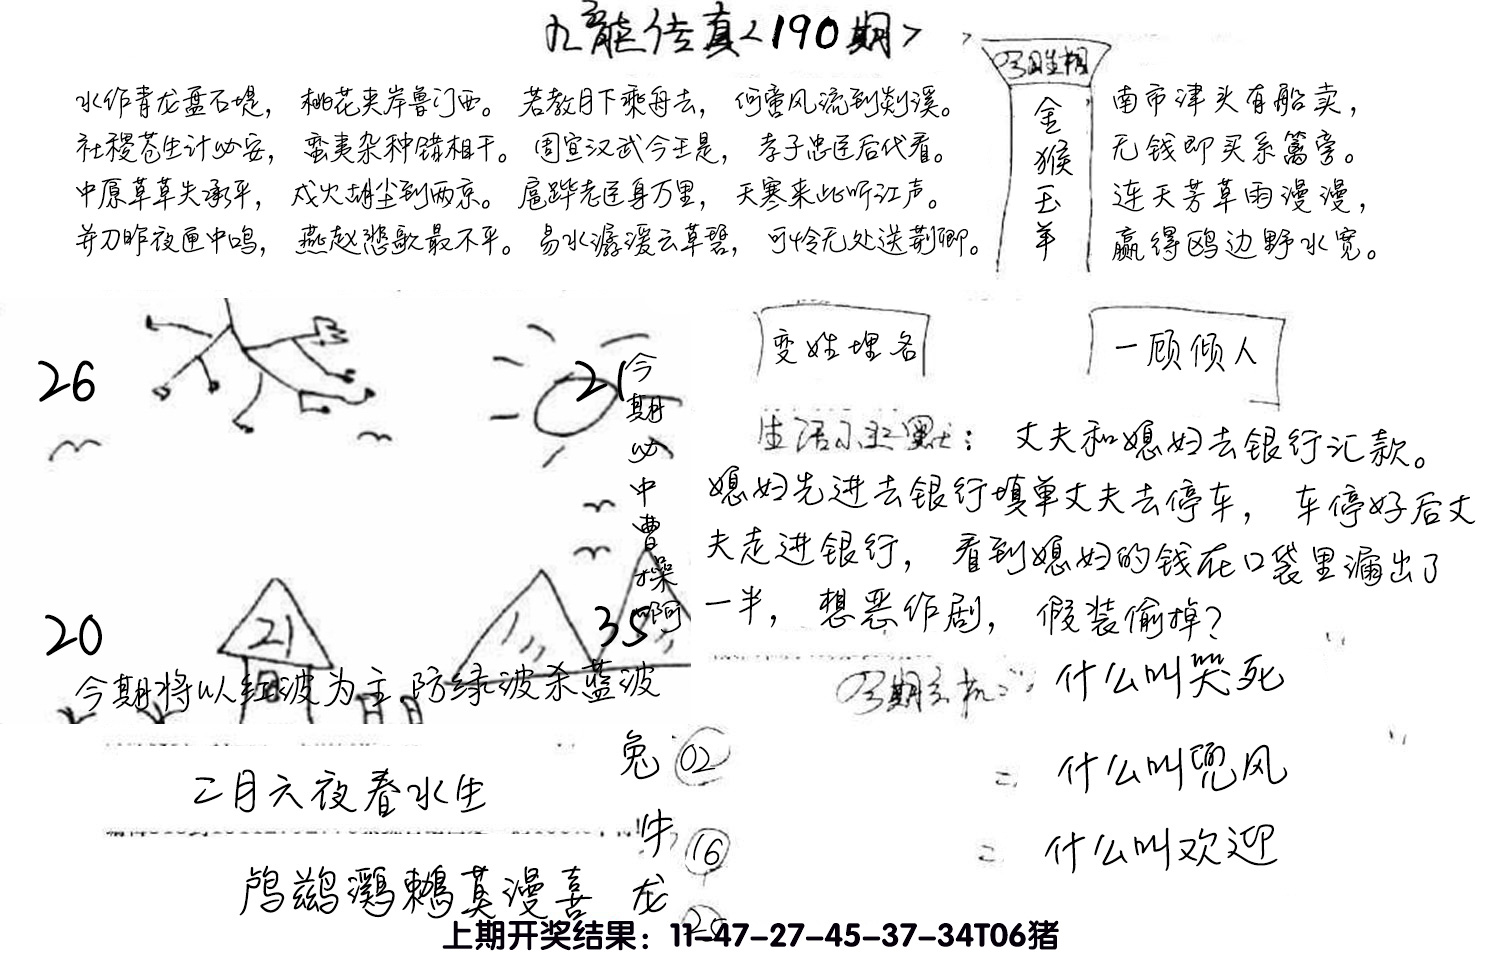 九龍传真<190期>
水作青龙盘石堤，桃花夹岸鲁门西。若教月下乘舟去，何啻风流到剡溪。
社稷苍生计必安，蛮夷杂种错相干。周宣汉武今王是，孝子忠臣后代看。
中原草草失承平，戍火胡尘到两京。扈跸老臣身万里，天寒来此听江声。
并刀昨夜匣中鸣，燕赵悲歌最不平。易水潺湲云草碧，可怜无处送荆卿。
金猴玉羊
南市津头有船卖，
无钱即买系篱旁。
连天芳草雨漫漫，
赢得鸥边野水宽。
26
21
今期必中曹操啊
20
21
35
今期将以红波为主 防绿波杀蓝波
变姓埋名
一顾倾人
生活小幽默：丈夫和媳妇去银行汇款。
媳妇先进去银行填单丈夫去停车，车停好后丈
夫走进银行，看到媳妇的钱在口袋里漏出了
一半，想恶作剧，假装偷掉?
什么叫哭死
什么叫兜风
什么叫欢迎
二月六夜春水生
鸬鹚鸂鶒莫漫喜
兔 02
牛 16
龙
上期开奖结果：11-47-27-45-37-34T06猪